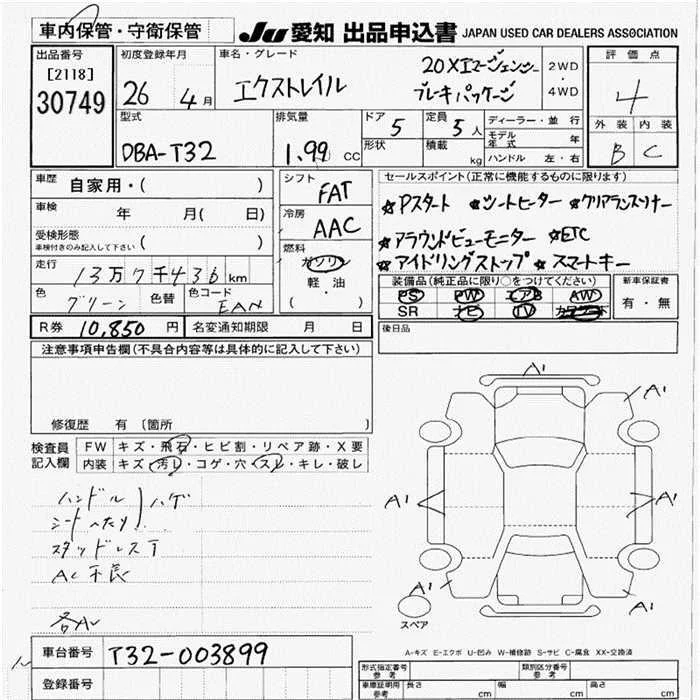 車内保管・守衛保管
JU 愛知 出品申込書 JAPAN USED CAR DEALERS ASSOCIATION
出品番号
[2118]
30749
初度登録年月
26 4月
車名・グレード
エクストレイル
20Xエマージェンシー
ブレーキパッケージ
2WD
・
4WD
評価点
4
外装 内装
B C
型式
DBA-T32
排気量
1.99 CC
ドア 5
形状
定員 5 人
積載 kg
ディーラー・並行
モデル年式 年
ハンドル 左・右
車歴 自家用・( )
車検 年 月( 日)
受検形態
車検付きのみ記入して下さい ( )
走行
13万7千436km
色 グリーン 色替 色コード EAN
シフト FAT
冷房 AAC
燃料
ガソリン
軽油
( ・ )
セールスポイント(正常に機能するものに限ります)
☆Pスタート ☆シートヒーター ☆クリアランスソナー
☆アラウンドビューモニター ☆ETC
☆アイドリングストップ ☆スマートキー
装備品(純正品に限り○をつけてください)
PS PW エアB AW
SR ナビ TV
新車保証書
有・無
R券 10,850 円 名変通知期限 月 日
後日品
注意事項申告欄(不具合内容等は具体的に記入して下さい)
修復歴 有 〔箇所 〕
検査員記入欄
FW キズ・飛石・ヒビ割・リペア跡・X要
内装 キズ・汚レ・コゲ・穴・スレ・キレ・破レ
ハンドル
シートへたり ハゲ
スタッドレスT
AC不良
各A1
A1
A1
A1
A1
A1
A1
A1
スペア
A-キズ E-エクボ U-凹み W-補修跡 S-サビ C-腐食 XX-交換済
車台番号 T32-003899
登録番号
型式指定番号
参考
類別区分番号
参考
車庫証明用
参考
長さ cm 幅 cm 高さ cm